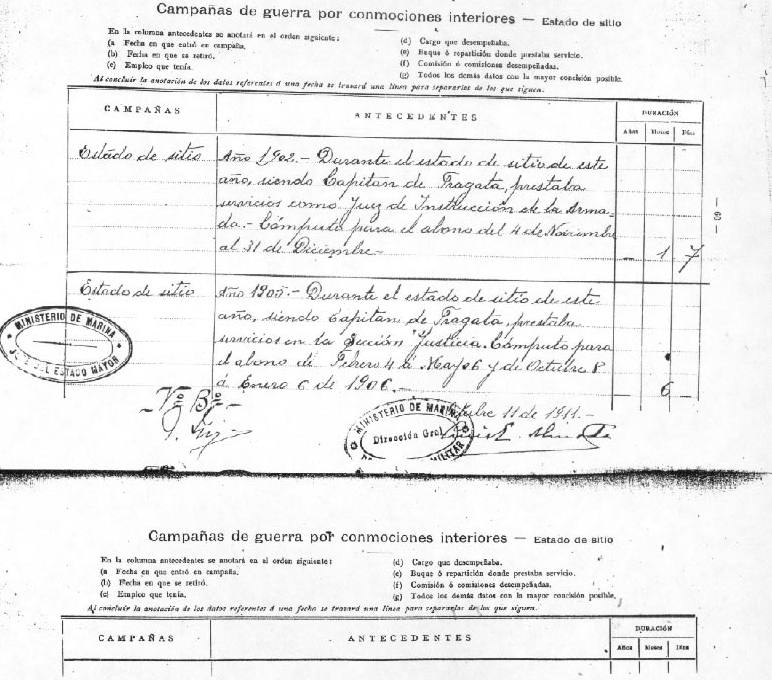 Campañas de guerra por conmociones interiores — Estado de sitio
En la columna antecedentes se anotará en el orden siguiente:
(a Fecha en que entró en campaña.
(b) Fecha en que se retiró.
(c) Empleo que tenía.
(d) Cargo que desempeñaba.
(e) Buque ó repartición donde prestaba servicio.
(f) Comisión ó comisiones desempeñadas.
(g) Todos los demás datos con la mayor concisión posible.
Al concluir la anotación de los datos referentes á una fecha se trazará una línea para separarlos de los que siguen.
CAMPAÑAS
ANTECEDENTES
DURACIÓN
Años Meses Días
Estado de sitio
Año 1902.- Durante el estado de sitio de este
año, siendo Capitan de Fragata, prestaba
servicios como Juez de Instrucción de la Arma-
da.- Cómputo para el abono del 4 de Noviembre
al 31 de Diciembre-
— 1 7
— 60 —
Estado de sitio
Año 1905.- Durante el estado de sitio de este
año, siendo Capitan de Fragata, prestaba
servicios en la Sección Justicia. Cómputo para
el abono de Febrero 4 á Mayo 6 y de Octubre 8
á Enero 6 de 1906.-
— 6 —
MINISTERIO DE MARINA
DEL ESTADO MAYOR
-Vto Bno-
Octubre 11 de 1911.-
MINISTERIO DE MARINA
Dirección Gral
MILITAR
Campañas de guerra por conmociones interiores — Estado de sitio
En la columna antecedentes se anotará en el orden siguiente:
(a Fecha en que entró en campaña.
(b) Fecha en que se retiró.
(c) Empleo que tenía.
(d) Cargo que desempeñaba.
(e) Buque ó repartición donde prestaba servicio.
(f) Comisión ó comisiones desempeñadas.
(g) Todos los demás datos con la mayor concisión posible.
Al concluir la anotación de los datos referentes á una fecha se trazará una línea para separarlos de los que siguen.
CAMPAÑAS
ANTECEDENTES
DURACIÓN
Años Meses Días